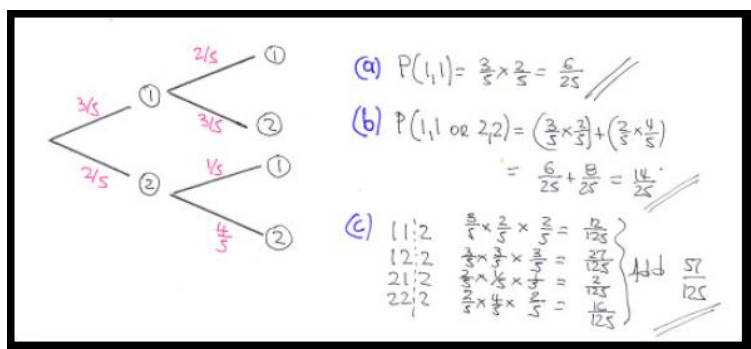 2/5
①
3/5
①
3/5
②
2/5
②
1/5
①
4/5
②
(a) P(1,1) = 3/5 × 2/5 = 6/25
(b) P(1,1 or 2,2) = (3/5 × 2/5) + (2/5 × 4/5)
= 6/25 + 8/25 = 14/25
(c) 11 2 3/5 × 2/5 × 2/5 = 12/125
12 2 3/5 × 3/5 × 3/5 = 27/125
21 2 2/5 × 1/5 × 1/5 = 2/125
22 2 2/5 × 4/5 × 2/5 = 16/125
Add 57/125